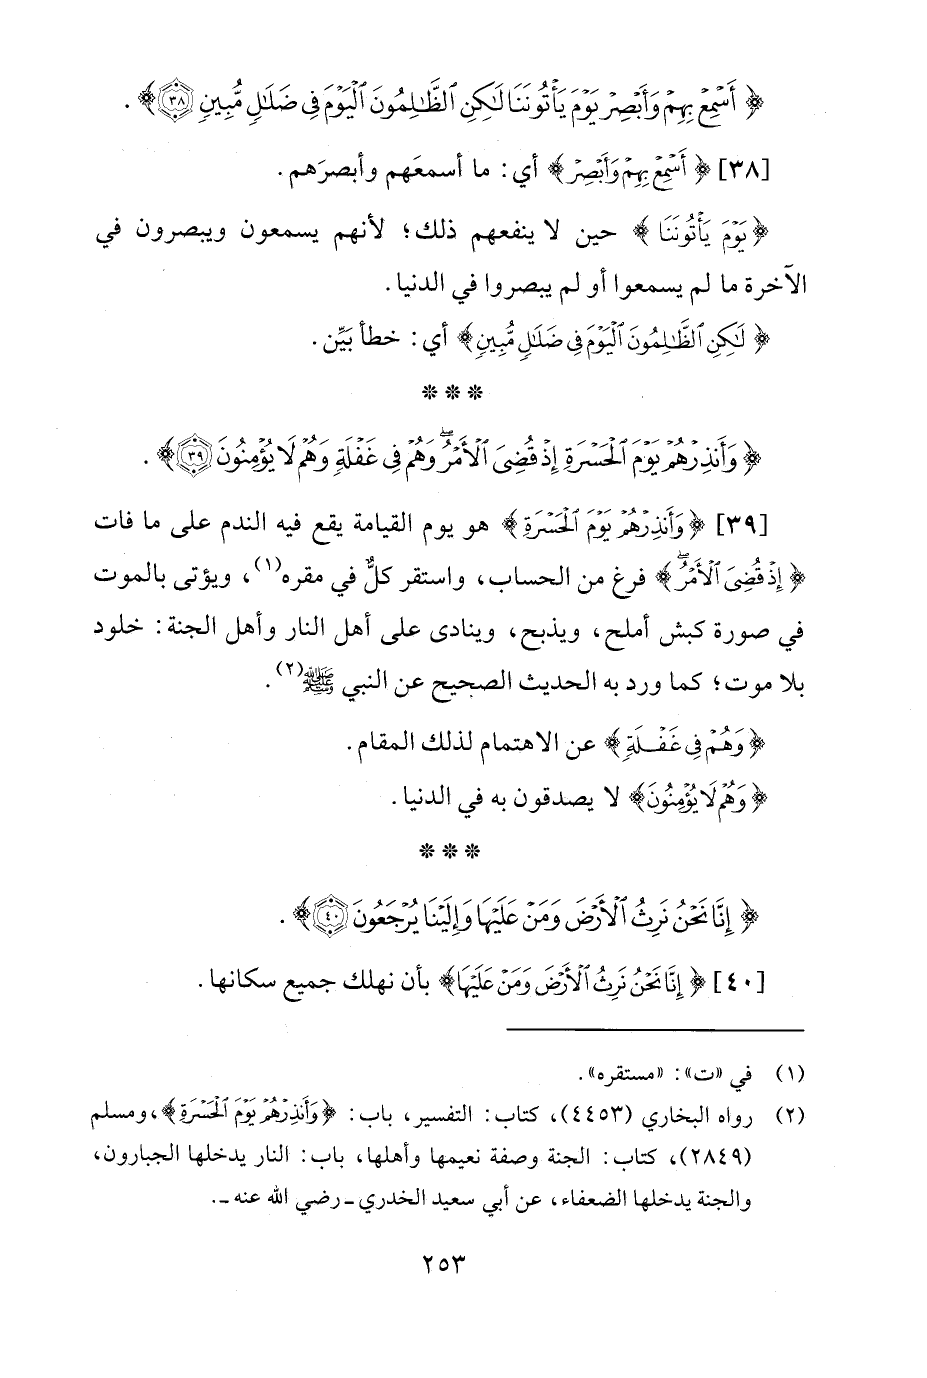 ﴿ أَسْمِعْ بِهِمْ وَأَبْصِرْ يَوْمَ يَأْتُونَنَا لَٰكِنِ ٱلظَّٰلِمُونَ ٱلْيَوْمَ فِى ضَلَٰلٍ مُّبِينٍ ۝٣٨ ﴾ .
[٣٨] ﴿ أَسْمِعْ بِهِمْ وَأَبْصِرْ ﴾ أي: ما أسمعَهم وأبصرَهم.
﴿ يَوْمَ يَأْتُونَنَا ﴾ حين لا ينفعهم ذلك؛ لأنهم يسمعون ويبصرون في
الآخرة ما لم يسمعوا أو لم يبصروا في الدنيا.
﴿ لَٰكِنِ ٱلظَّٰلِمُونَ ٱلْيَوْمَ فِى ضَلَٰلٍ مُّبِينٍ ﴾ أي: خطأ بيِّن.
* * *
﴿ وَأَنذِرْهُمْ يَوْمَ ٱلْحَسْرَةِ إِذْ قُضِىَ ٱلْأَمْرُ ۖ وَهُمْ فِى غَفْلَةٍ وَهُمْ لَا يُؤْمِنُونَ ۝٣٩ ﴾ .
[٣٩] ﴿ وَأَنذِرْهُمْ يَوْمَ ٱلْحَسْرَةِ ﴾ هو يوم القيامة يقع فيه الندم على ما فات
﴿ إِذْ قُضِىَ ٱلْأَمْرُ ۖ ﴾ فرغ من الحساب، واستقر كلٌّ في مقره(١)، ويؤتى بالموت
في صورة كبش أملح، ويذبح، وينادى على أهل النار وأهل الجنة: خلود
بلا موت؛ كما ورد به الحديث الصحيح عن النبي ﷺ(٢).
﴿ وَهُمْ فِى غَفْلَةٍ ﴾ عن الاهتمام لذلك المقام.
﴿ وَهُمْ لَا يُؤْمِنُونَ ﴾ لا يصدقون به في الدنيا.
* * *
﴿ إِنَّا نَحْنُ نَرِثُ ٱلْأَرْضَ وَمَنْ عَلَيْهَا وَإِلَيْنَا يُرْجَعُونَ ۝٤٠ ﴾ .
[٤٠] ﴿ إِنَّا نَحْنُ نَرِثُ ٱلْأَرْضَ وَمَنْ عَلَيْهَا ﴾ بأن نهلك جميع سكانها.
(١) في «ت»: «مستقره».
(٢) رواه البخاري (٤٤٥٣)، كتاب: التفسير، باب: ﴿ وَأَنذِرْهُمْ يَوْمَ ٱلْحَسْرَةِ ﴾، ومسلم
(٢٨٤٩)، كتاب: الجنة وصفة نعيمها وأهلها، باب: النار يدخلها الجبارون،
والجنة يدخلها الضعفاء، عن أبي سعيد الخدري ـ رضي الله عنه ـ.
٢٥٣